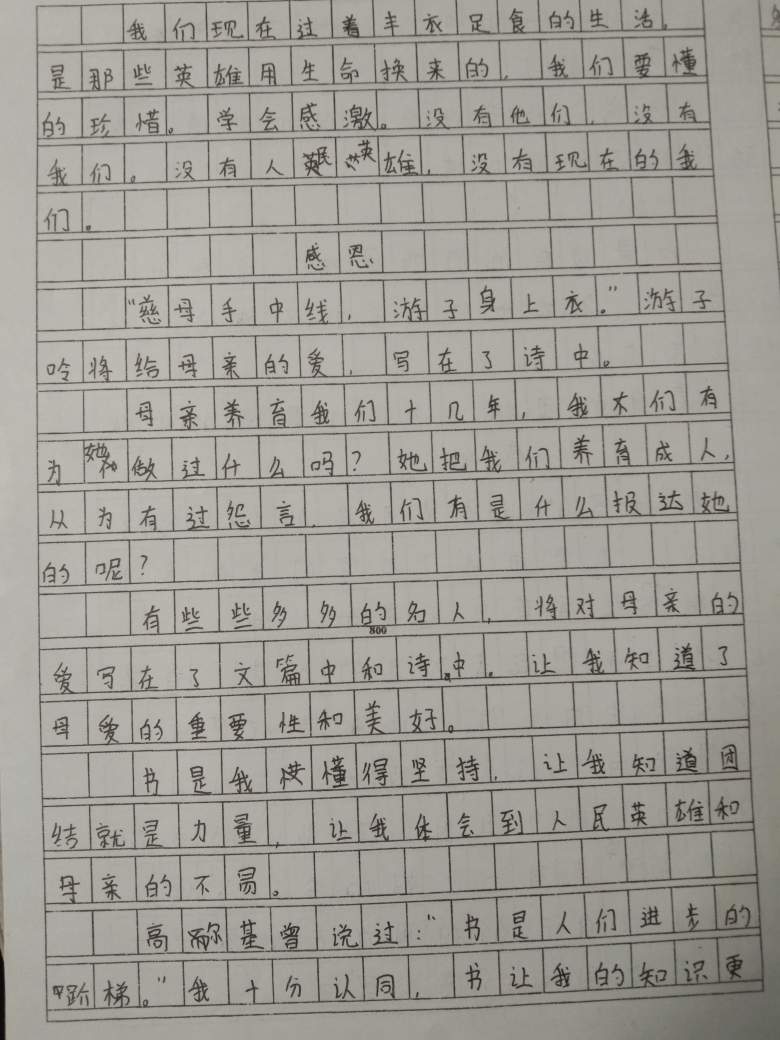 我们现在过着丰衣足食的生活。
是那些英雄用生命换来的，我们要懂
的珍惜。学会感激。没有他们，没有
我们。没有人民英雄，没有现在的我
们。
感恩
“慈母手中线，游子身上衣。”游子
吟将给母亲的爱，写在了诗中。
母亲养育我们十几年，我木们有
为她做过什么吗？她把我们养育成人，
从为有过怨言，我们有是什么报达她
的呢？
有些些多多的名人，将对母亲的
800
爱写在了文篇中和诗中。让我知道了
母爱的重要性和美好。
书是我懂得坚持，让我知道团
结就是力量，让我体会到人民英雄和
母亲的不易。
高尔基曾说过：“书是人们进步的
阶梯。”我十分认同，书让我的知识更